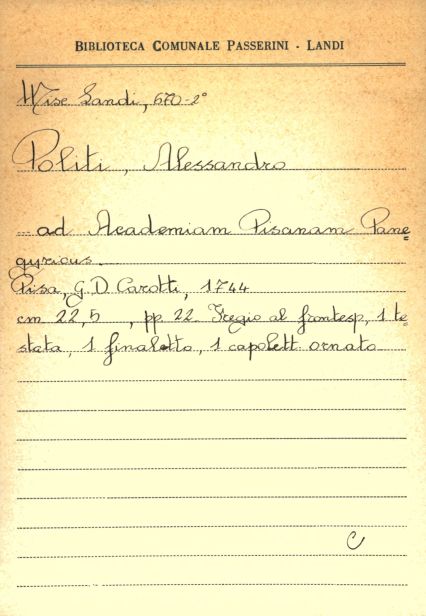 BIBLIOTECA COMUNALE PASSERINI - LANDI
Misc Landi, 670-2°
Politi, Alessandro
... ad Academiam Pisanam Pane
gyricus.
Pisa, G. D. Carotti, 1744
cm 22,5 , pp 22. Fregio al frontesp, 1 te
stata, 1 finaletto, 1 capolett ornato
C